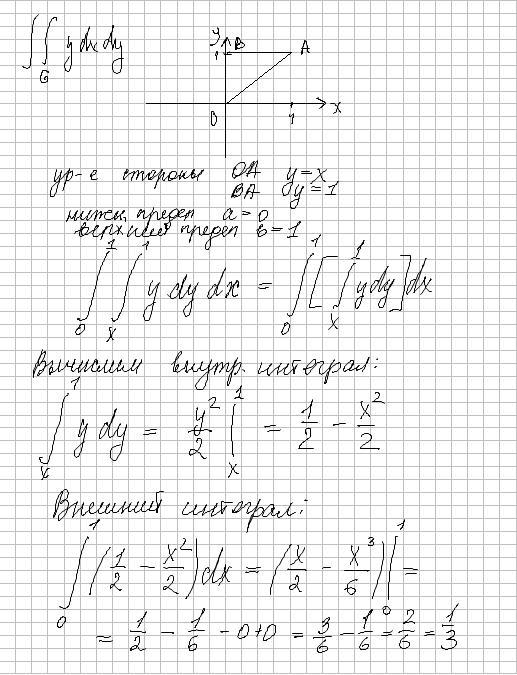 ∬_G y dx dy
y B A
1
0 1 x
ур-е стороны OA y = x
BA y = 1
нижн. предел a = 0
верхний предел b = 1
∫_0^1 ∫_x^1 y dy dx = ∫_0^1 [ ∫_x^1 y dy ] dx
Вычислим внутр. интеграл:
∫_x^1 y dy = y²/2 |_x^1 = 1/2 − x²/2
Внешний интеграл:
∫_0^1 (1/2 − x²/2) dx = (x/2 − x³/6) |_0^1 =
= 1/2 − 1/6 − 0 + 0 = 3/6 − 1/6 = 2/6 = 1/3